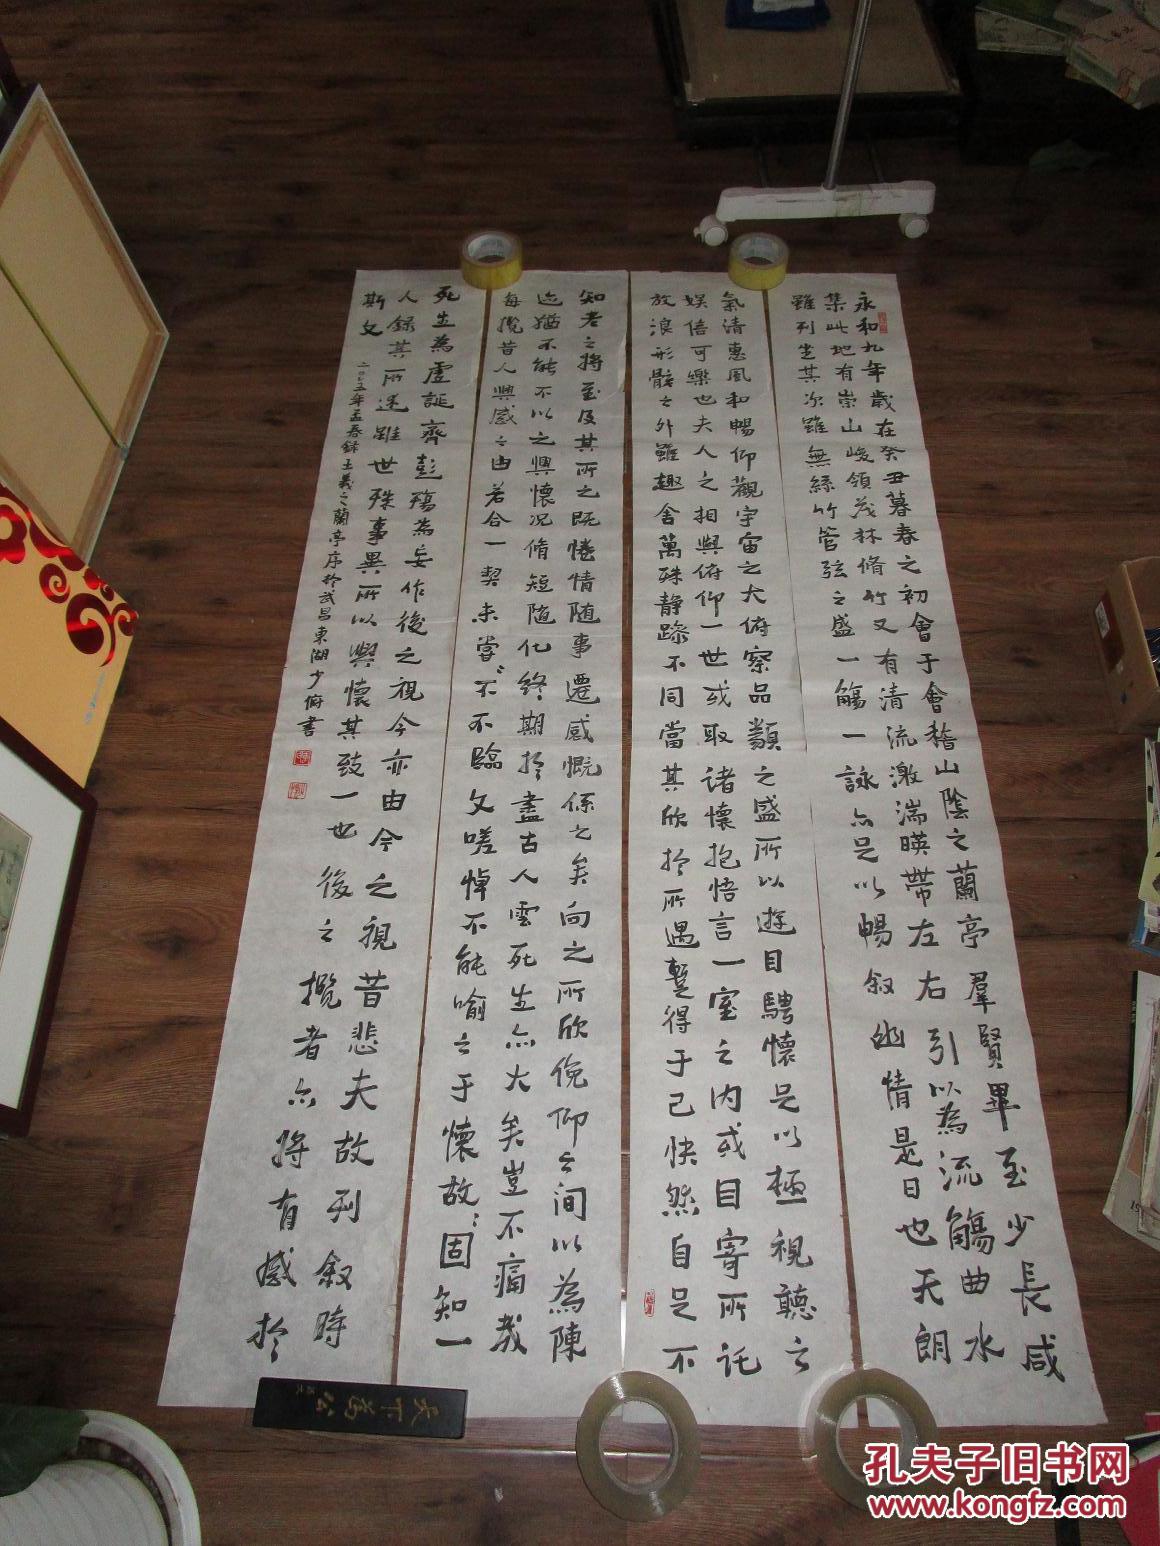 永和九年歲在癸丑暮春之初會于會稽山陰之蘭亭羣賢畢至少長咸
集此地有崇山峻領茂林脩竹又有清流激湍暎帶左右引以為流觴曲水
雖列坐其次雖無絲竹管弦之盛一觴一詠亦足以暢叙幽情是日也天朗
氣清惠風和暢仰觀宇宙之大俯察品類之盛所以遊目騁懷足以極視聽之
娛信可樂也夫人之相與俯仰一世或取诸懷抱悟言一室之内或目寄所託
放浪形骸之外雖趣舍萬殊静躁不同當其欣於所遇暫得于己快然自足不
知老之將至及其所之既惓情随事遷感慨係之矣向之所欣俛仰之间以為陳
迹猶不能不以之興懷况脩短随化終期於盡古人雲死生亦大矣豈不痛哉
每攬昔人興感之由若合一契未嘗〻不不臨文嗟悼不能喻之于懷故〻固知一
死生為虛誕齊彭殤為妄作後之視今亦由今之視昔悲夫故列叙時
人録其所述雖世殊事異所以興懷其致一也後之攬者亦將有感於
斯文
年孟春録王羲之蘭亭序於武昌東湖少俯書
天下為公
孔夫子旧书网
www.kongfz.com